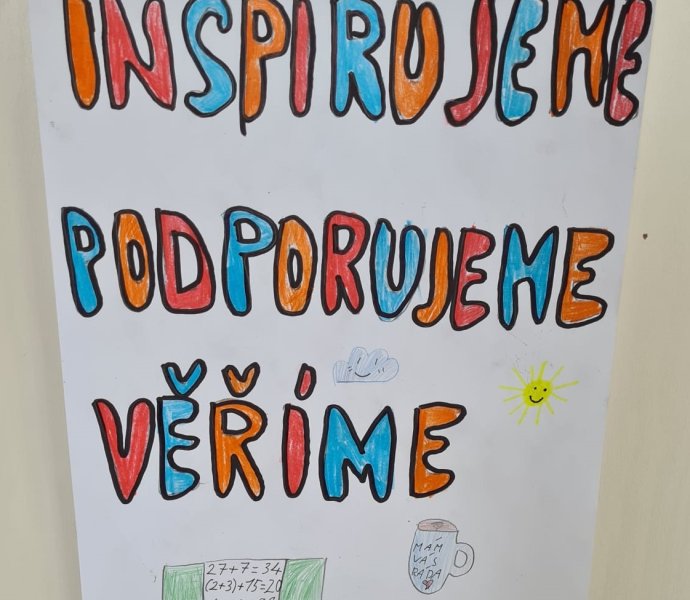 INSPIRUJEME
PODPORUJEME
VĚŘÍME
MÁM
VÁS
RÁDA
27+7=34
(2+3)+15=20